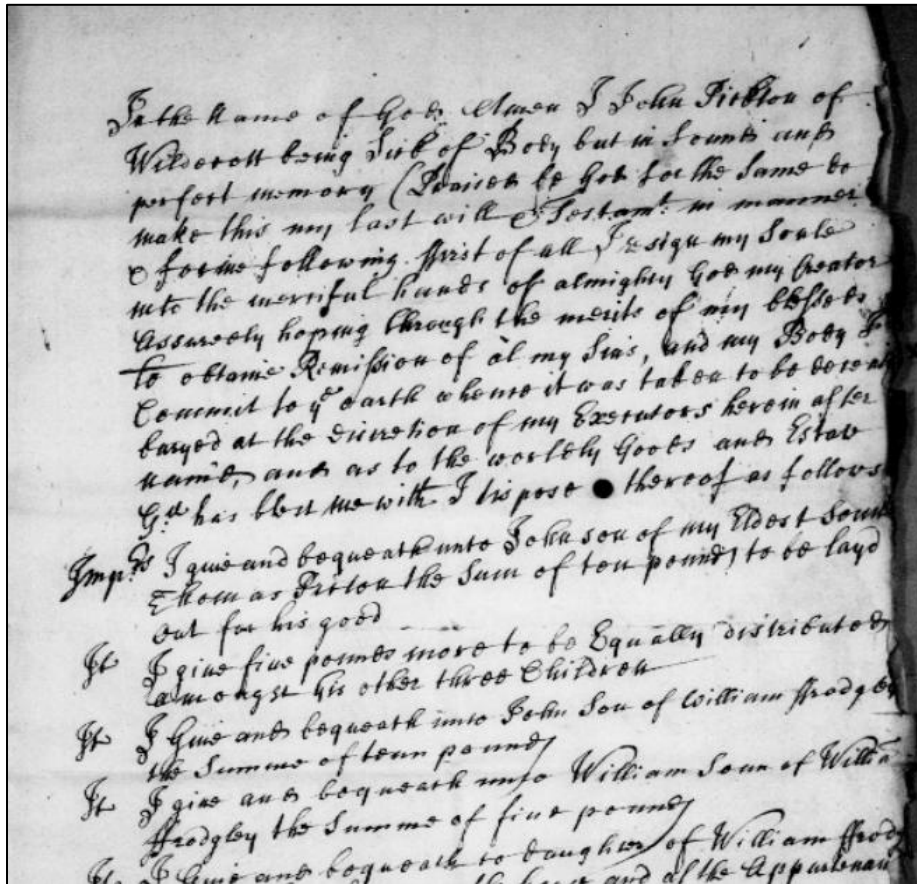 In the Name of God Amen I John Pickton of
Wildecott being Sick of Body but in Sound and
perfect memory (Praised be God for the Same do
make this my last will & Testamt in manner
& forme following. ffirst of all I resign my Soule
into the merciful hands of almighty God my Creator
Assuredly hoping through the merits of my blessed
to obtaine Remission of al my Sins, and my Body I
Commit to ye earth whence it was taken to be decently
buryed at the discretion of my Executors herein after
named, and as to the worldly Goods and Estate
Gd has blest me with I dispose thereof as follows
Imprs I give and bequeath unto John son of my Eldest Sonne
Thomas the Sum of ten pounds to be layd
out for his good
It I give five pounds more to be Equally distributed
amongst his other three Children
It I Give and bequeath unto John Son of William ffrodgley
the Summe of tenn pounds
It I give and bequeath unto William Sonn of Willia
ffrodgley the Summe of five pounds
It I Give and bequeath to daughter of William ffrodg
the and al the Appurtenan